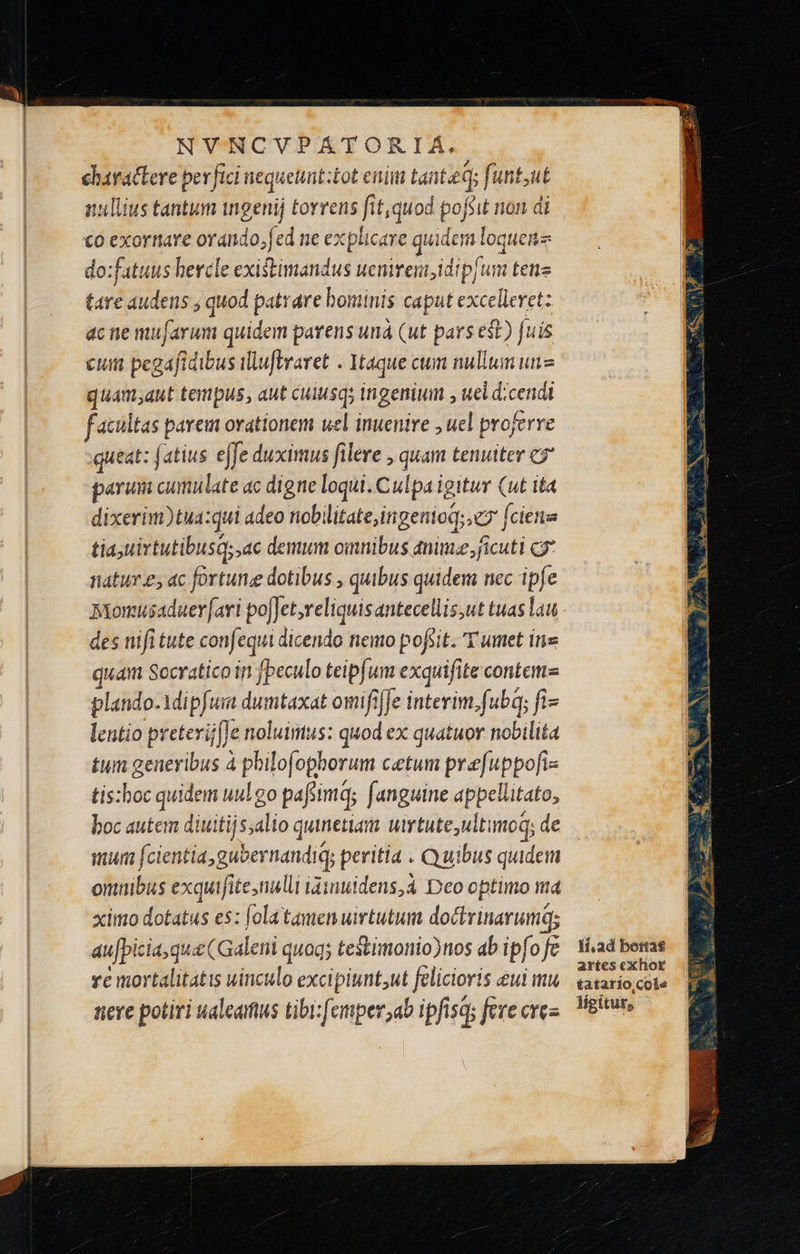 NVNCVPATORIA.
charactere perfici nequeunt:tot enim tantæq; ſunt,ut
nullius tantum ingenij torrens ſit,quod poſsit non di
co exornare orando,ſed ne explicare quidem loquen=
do:fatuus hercle exiſtimandus uenirem,idipſum ten=
tare audens , quod patrare hominis caput excelleret:
ac ne muſarum quidem parens unà (ut pars eſt) ſuis
cum pegaſidibus illuſtraret . Itaque cum nullum un=
quam,aut tempus, aut cuiusq; ingenium , uel dicendi
facultas parem orationem uel inuenire , uel proferre
queat: ſatius eſſe duximus ſilere , quam tenuiter &
parum cumulate ac digne loqui. Culpa igitur (ut ita
dixerim)tua:qui adeo nobilitate,ingenioq;,& ſcien=
tia,uirtutibusq;,ac demum omnibus animæ,ſicuti &
naturæ, ac fortunæ dotibus , quibus quidem nec ipſe
Momus aduerſari poſſet,reliquis antecellis,ut tuas lau
des niſi tute conſequi dicendo nemo poſsit. Tumet in=
quam Socratico in ſpeculo teipſum exquiſite contem=
plando. Idipſum dumtaxat omiſiſſe interim,ſubq; ſi=
lentio preterijſſe noluimus: quod ex quatuor nobilita
tum generibus à philoſophorum cætum præſuppoſi=
tis:hoc quidem uulgo paſsimq; ſanguine appellitato,
hoc autem diuitijs,alio quinetiam uirtute,ultimoq; de
mum ſcientia,gubernandiq; peritia . Quibus quidem
omnibus exquiſite,nulli iāinuidens,à Deo optimo ma
ximo dotatus es: ſola tamen uirtutum doctrinarumq;
auſpicia,quæ(Galeni quoq; teſtimonio)nos ab ipſo fe
re mortalitatis uinculo excipiunt,ut felicioris æui mu
nere potiri ualeamus tibi:ſemper,ab ipſisq; fere cre=
li,ad bonas
artes exhor
tatario,cole
ligitur,